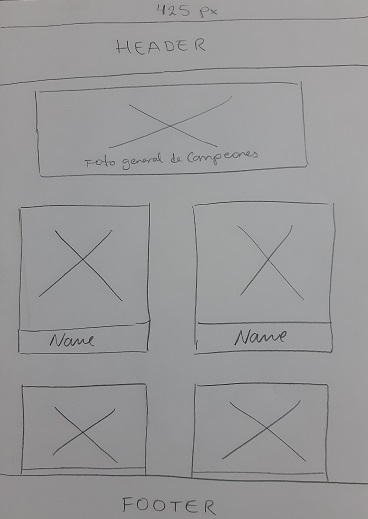 425 px
HEADER
Foto general de Campeones
Name
Name
FOOTER